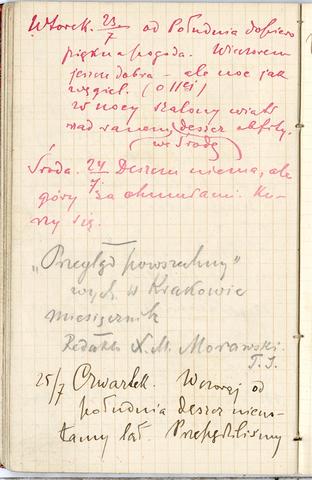 Wtorek. 23/7 od południa dopiero
piękna pogoda. Wieczorem
jeszcze dobra – ale noc jak
węgiel. (o 11ej)
w nocy szalony wiatr
nad ranem deszcz obfity.
(we środę)
Środa. 24/7 Deszczu niema, ale
góry za chmurami. Ku-
rzy się.
"Przegląd powszechny"
wych. w Krakowie
miesięcznik
Redaktor X. M. Morawski.
T. J.
25/7 Czwartek. Wczoraj od
południa deszcz nieus-
tanny lał. Przepędziliśmy